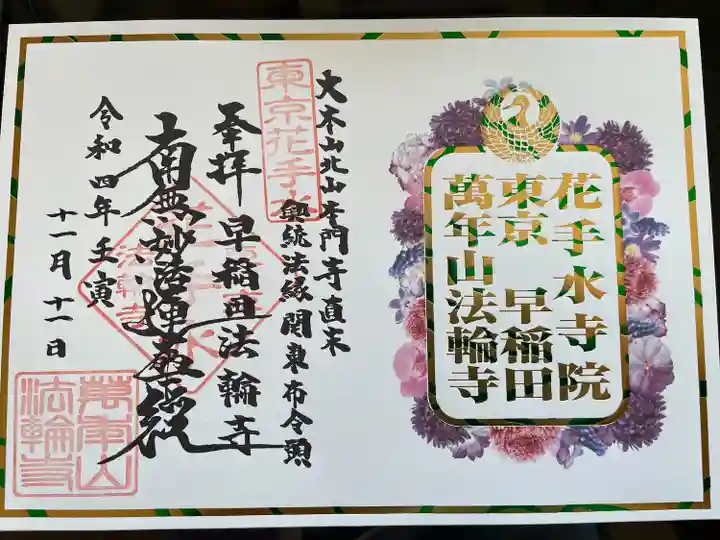 花手水寺院
東京 早稲田
萬年山法輪寺
大本山北山本門寺直末
興統法縁関東布令頭
東京花手水
奉拝 早稲田法輪寺
南無妙法蓮華経
令和四年壬寅
十一月十一日
萬年山
法輪寺